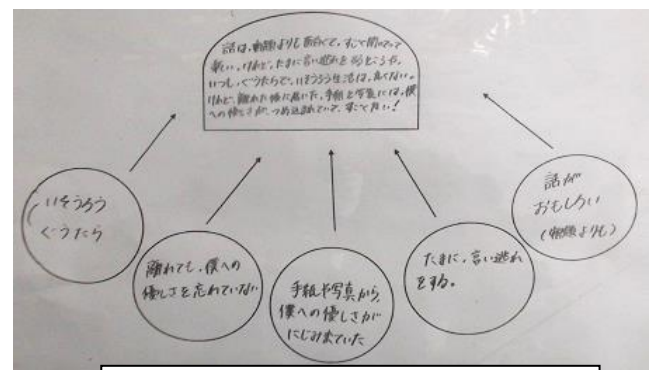 話は、宿題よりも面白くて、すごく聞いてて
楽しい。けれど、たまに言い逃れをするところだ。
いつも、ぐうたらで、いそうろう生活は、良くない。
けれど、離れた後に届いた、手紙と写真には、僕
への優しさが、つめ込まれていて、すごく良い!
いそうろう
ぐうたら
離れても、僕への
優しさを忘れていない
手紙や写真から、
僕への優しさが
にじみ出ていた
たまに、言い逃れ
をする。
話が
おもしろい
(宿題よりも)